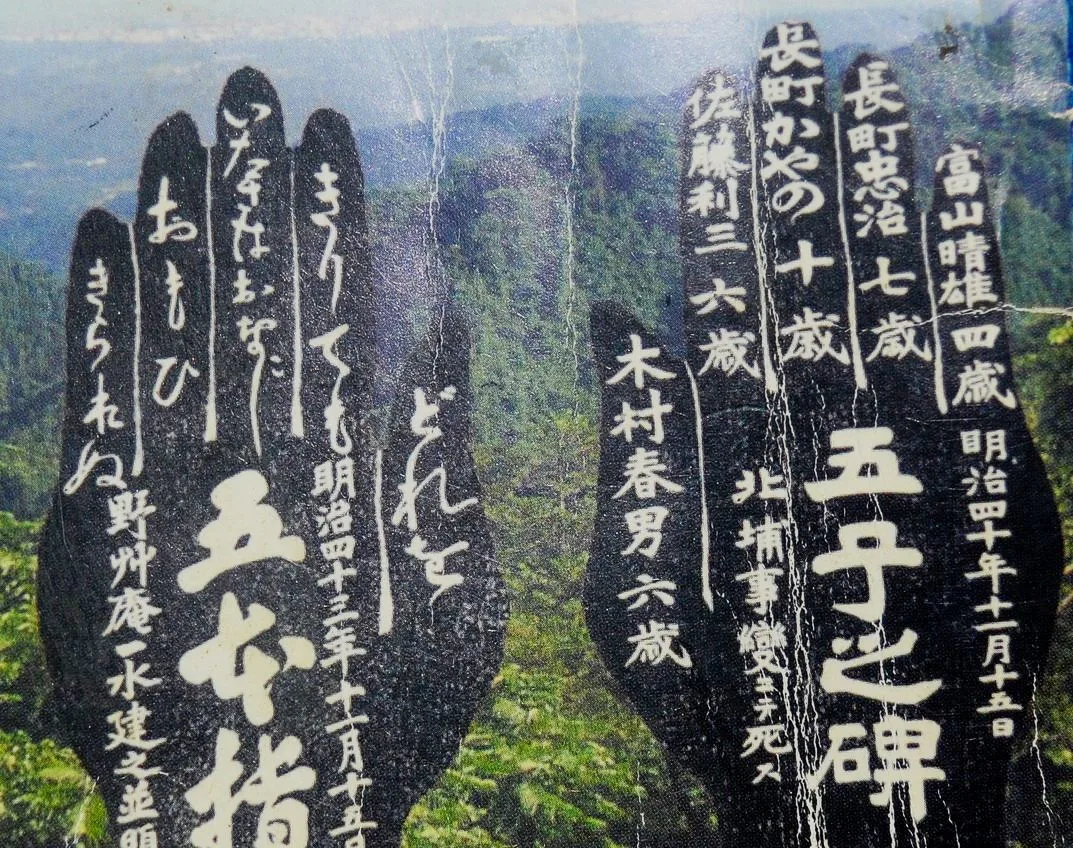 富山晴雄四歳
明治四十年十一月十五日
長町忠治七歳
五子之碑
長町かやの十歳
北埔事變ニテ死ス
佐藤利三六歳
木村春男六歳
どれを
きりても
明治四十三年十一月十五日
いたさはおなじ
五本指
おもひ
きられぬ
野艸庵一水建之並